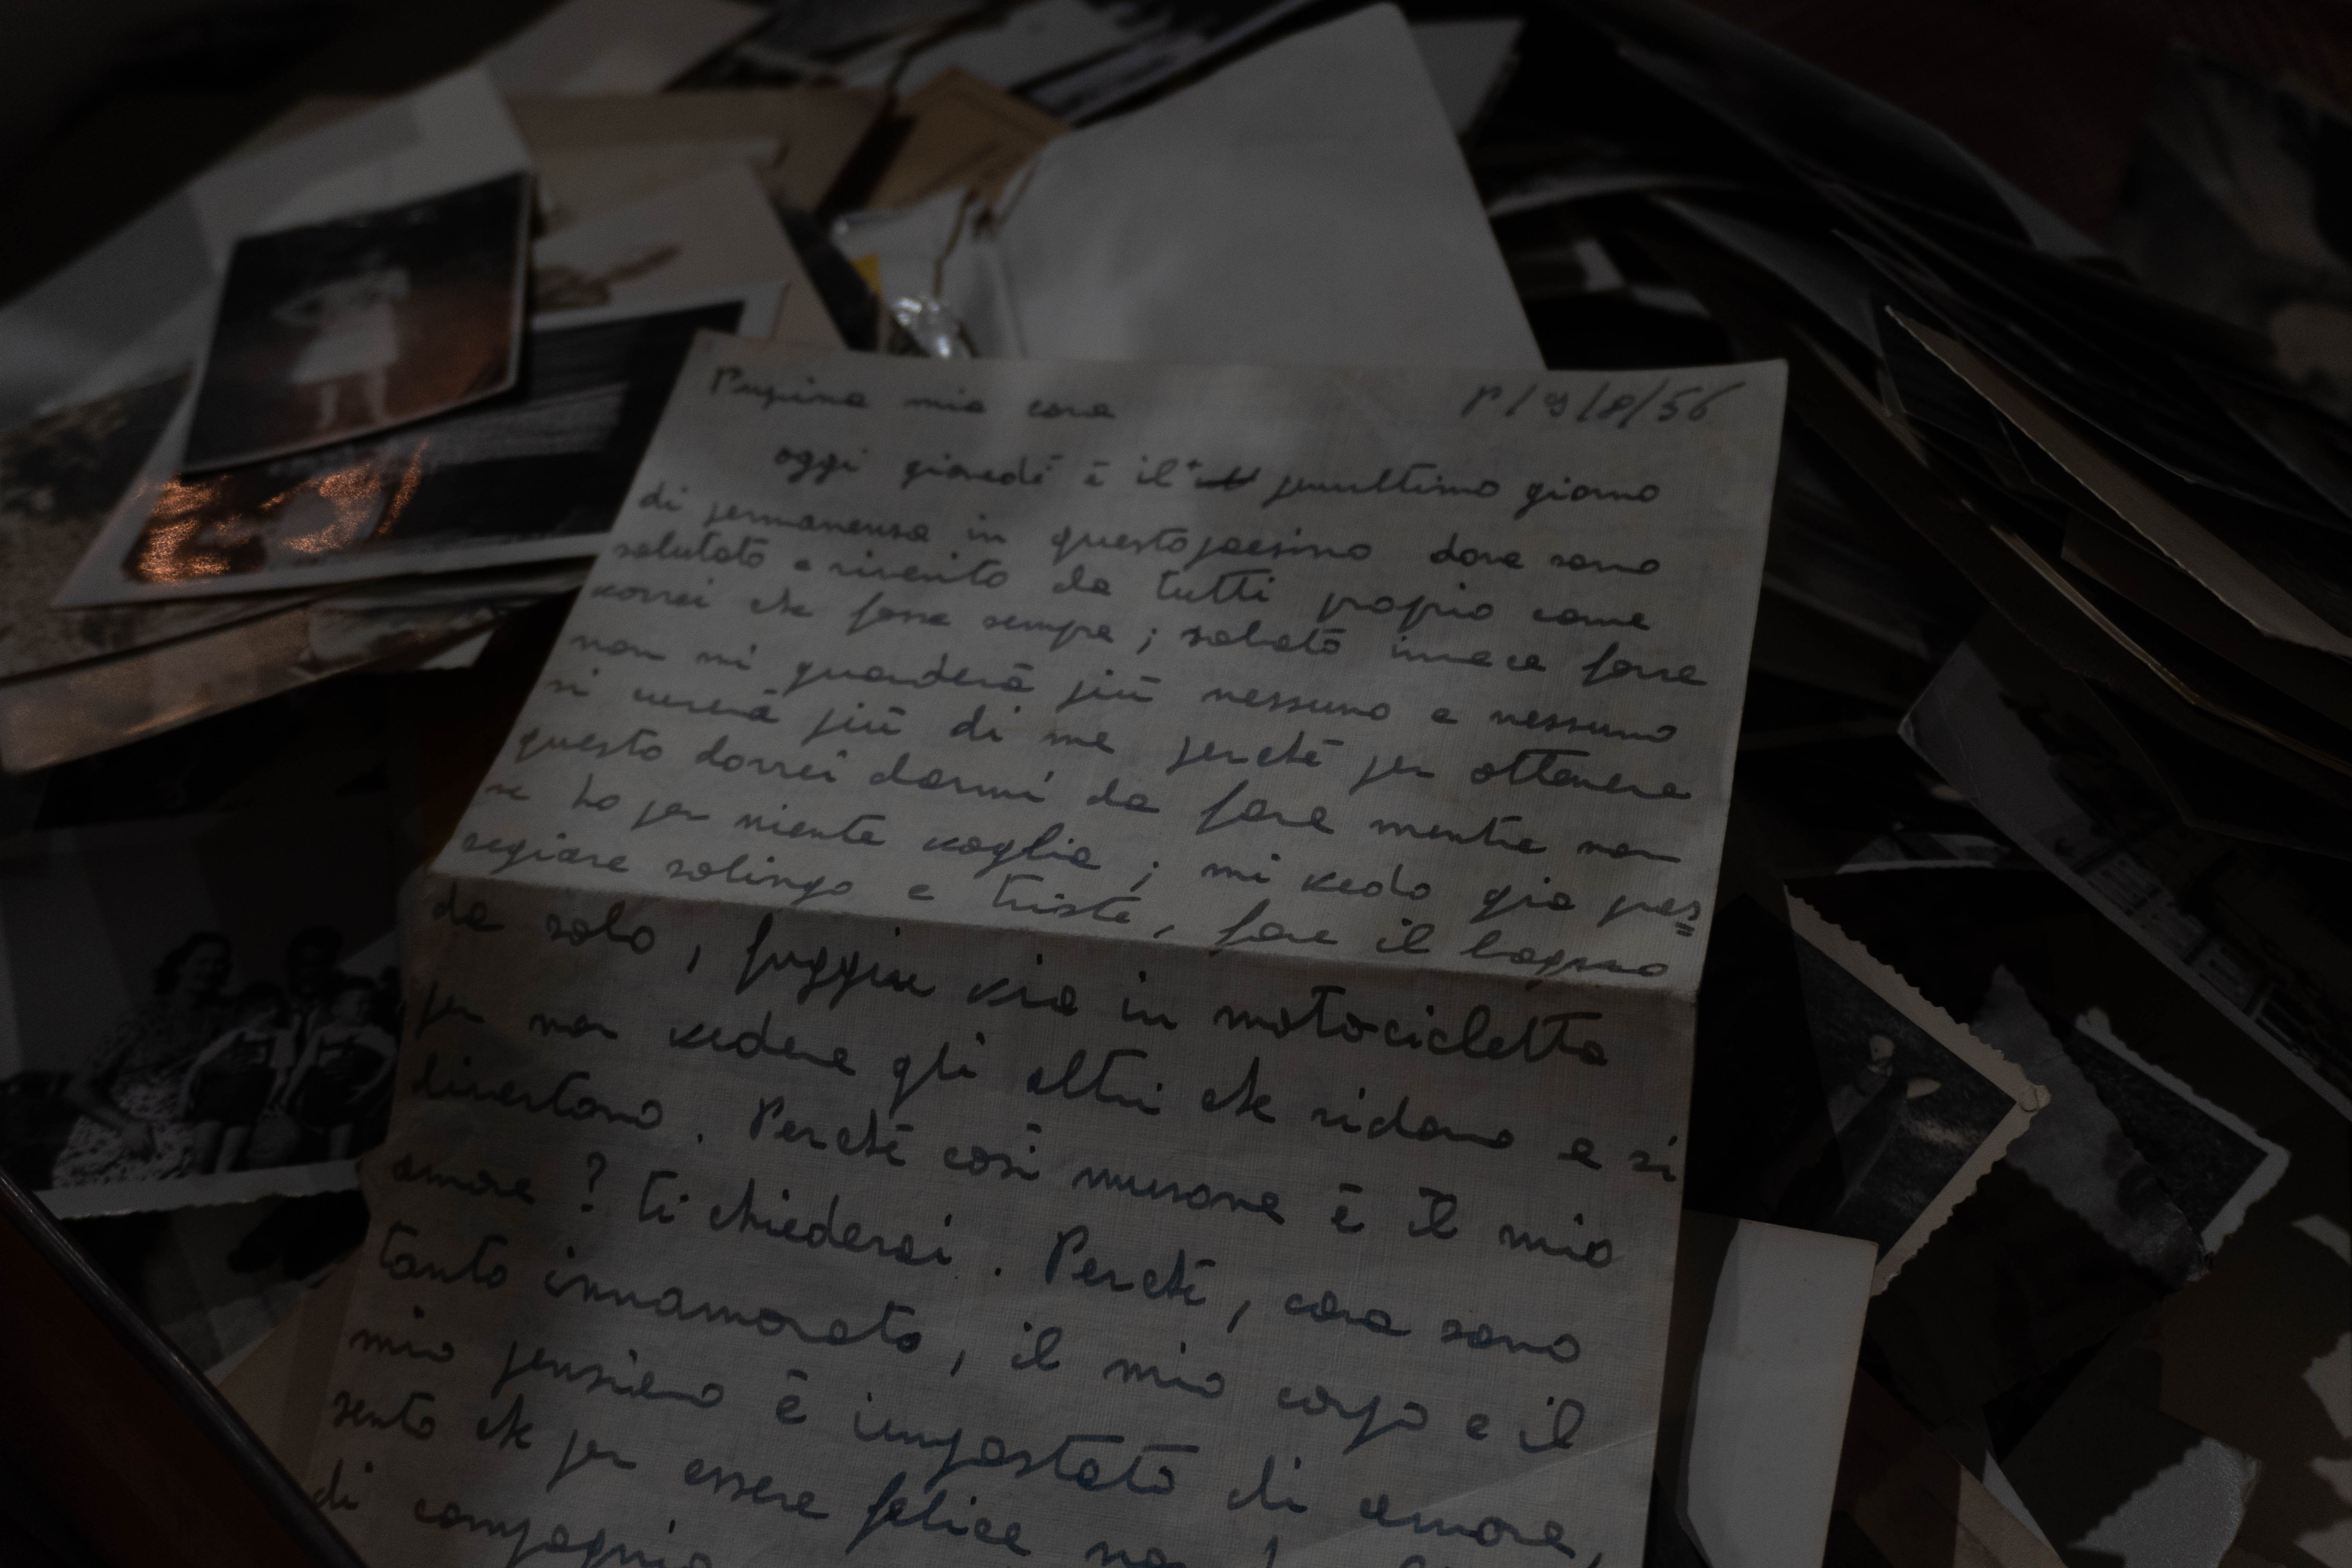 Pupina mia cara P/9/8/56
oggi giovedì è il penultimo giorno
di permanenza in questo paesino dove sono
salutato e riverito da tutti proprio come
vorrei che fosse sempre; sabato invece forse
non mi guarderà più nessuno e nessuno
si curerà più di me perchè per ottenere
questo dovrei darmi da fare mentre non
ne ho per niente voglia; mi vedo già pas=
seggiare solingo e triste, fare il bagno
da solo, fuggire via in motocicletta
per non vedere gli altri che ridono e si
divertono. Perchè così musone è il mio
amore? ti chiederai. Perchè, cara sono
tanto innamorato, il mio corpo e il
mio pensiero è impastato di amore,
sento che per essere felice
di compagnia